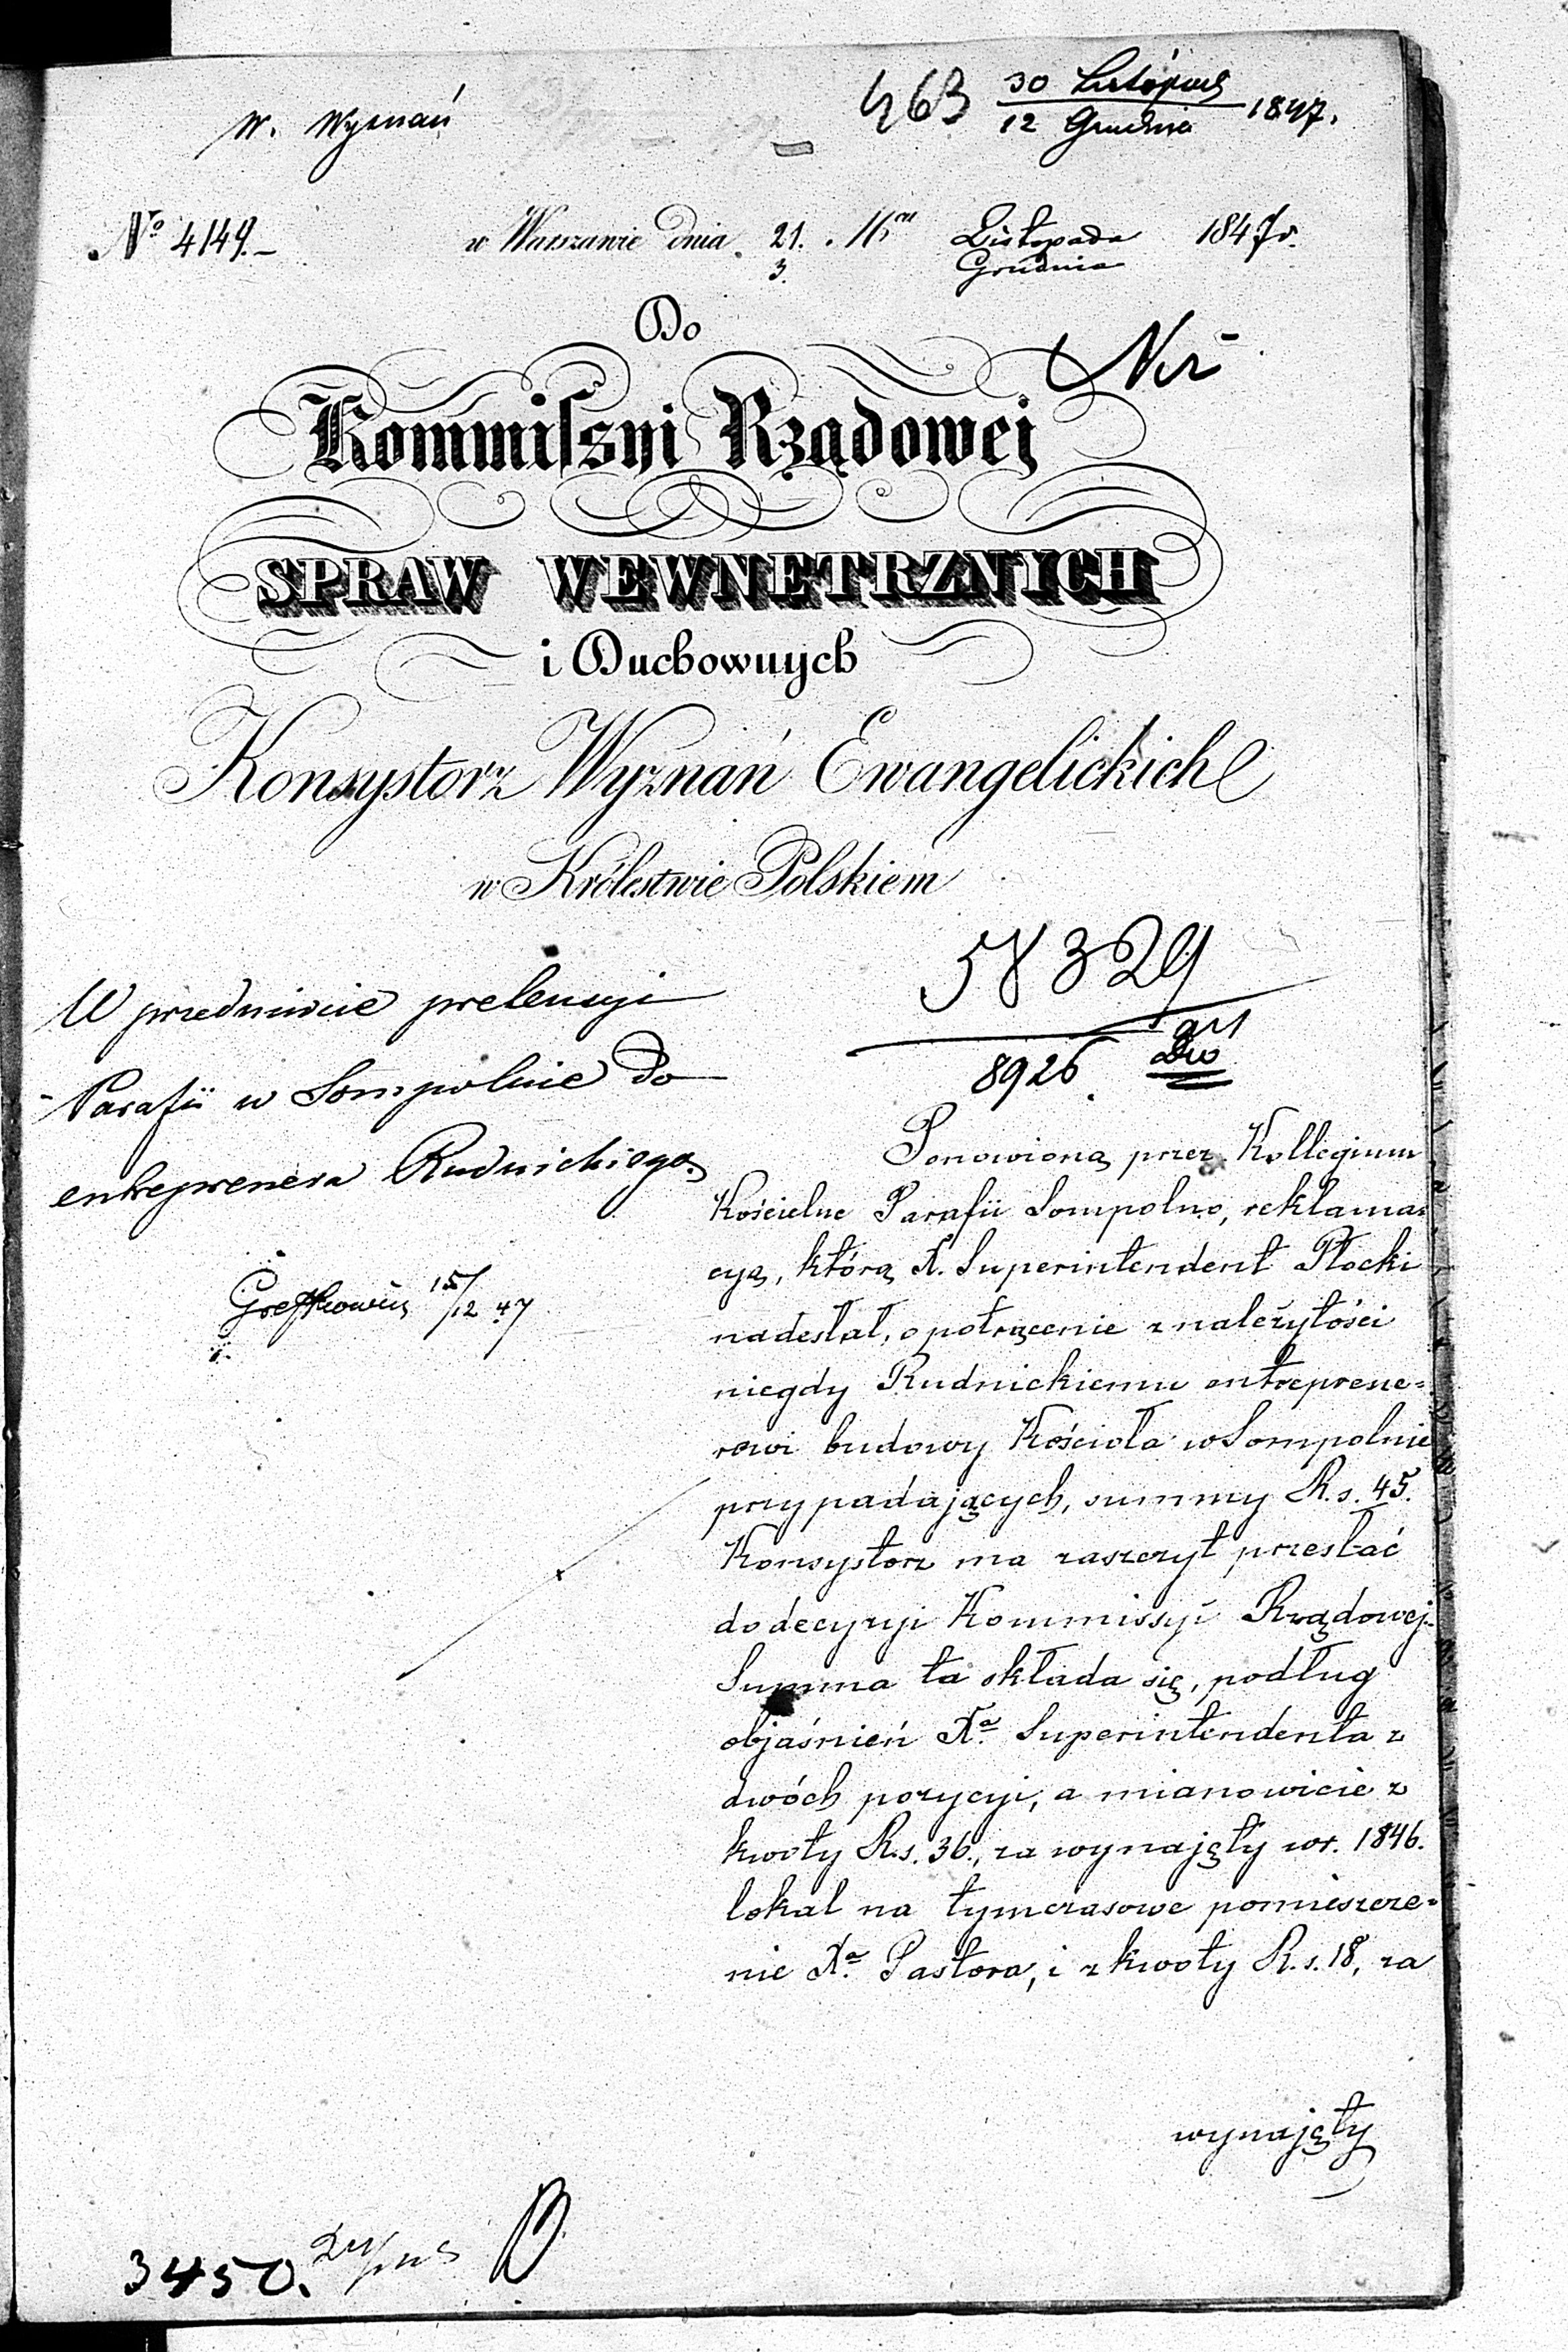 W. Wyznań
463 30 Listopad
12 Grudnia 1847.
No 4149.–
w Warszawie dnia 21. Listopada 1847 r.
3. Grudnia
Do
Kommiſsyi Rządowej
SPRAW WEWNĘTRZNYCH
i Duchownych
Konsystorz Wyznań Ewangelickich
w Królestwie Polskiem
58329
8926
W przedmiocie pretensyi
Parafii w Sompolnie do
entreprenera Rudnickiego
15/12 47
Ponowioną przez Kollegium
Kościelne Parafii Sompolno, reklama=
cyą, którą X. Superintendent Płocki
nadesłał, o potrącenie z należytości
niegdy Rudnickiemu entreprene=
rowi budowy Kościoła w Sompolnie
przypadających, summy R.s. 45.
Konsystorz ma zaszczyt przesłać
do decyzyi Kommissyi Rządowej.
Summa ta składa się, podług
objaśnień Xa. Superintendenta z
dwóch pozycyi, a mianowicie z
kwoty R.s. 36., za wynajęty w r. 1846.
lokal na tymczasowe pomieszcze=
nie Xa. Pastora, i z kwoty R.s. 18, za
wynajęty
3450.